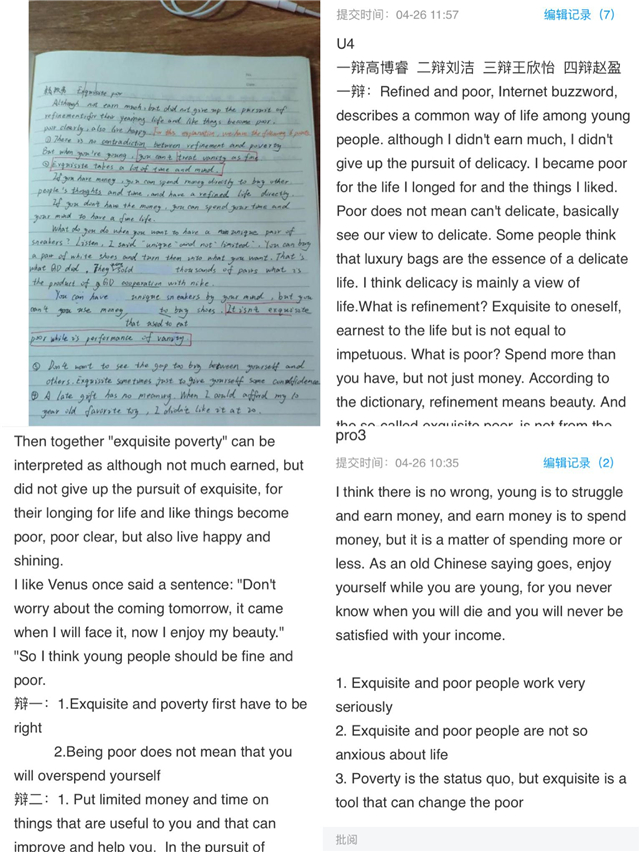 Although not earn much, but did not give up the pursuit of
refinement for their yearning life and like things become poor,
poor clearly, also live happy.
① There is no contradiction between refinement and poverty
But when you're young, you can't treat vanity as fine
② Exquisite takes a lot of time and mind.
If you have money, you can spend money directly to buy other
people's thoughts and time, and have a refined life directly.
If you don't have the money, you can spend your time and
your mind to have a fine life.
What do you do when you want to have a unique pair of
sneakers? Listen, I said "unique" and not "limited". You can buy
a pair of white shoes and turn them into what you want. That's
what did. They sold thousands of pairs what is
the product of cooperation with nike.
You can have unique sneakers by your mind, but you
can't use money to buy shoes. It isn't exquisite
that used to eat
poor while is performance of vanity.
① Don't want to see the gap too big between yourself and
others. Exquisite sometimes just to give yourself some confidence
② A late gift has no meaning. When I could afford my 10
year old favorite toy, I didn't like it at 20.
提交时间：04-26 11:57 编辑记录（7）
U4
一辩高博睿 二辩刘洁 三辩王欣怡 四辩赵盈
一辩：Refined and poor, Internet buzzword,
describes a common way of life among young
people. although I didn't earn much, I didn't
give up the pursuit of delicacy. I became poor
for the life I longed for and the things I liked.
Poor does not mean can't delicate, basically
see our view to delicate. Some people think
that luxury bags are the essence of a delicate
life. I think delicacy is mainly a view of
life.What is refinement? Exquisite to oneself,
earnest to the life but is not equal to
impetuous. What is poor? Spend more than
you have, but not just money. According to
the dictionary, refinement means beauty. And
the so-called exquisite poor, is not from the
Then together "exquisite poverty" can be
interpreted as although not much earned, but
did not give up the pursuit of exquisite, for
their longing for life and like things become
poor, poor clear, but also live happy and
shining.
I like Venus once said a sentence: "Don't
worry about the coming tomorrow, it came
when I will face it, now I enjoy my beauty."
"So I think young people should be fine and
poor.
辩一：1.Exquisite and poverty first have to be
right
2.Being poor does not mean that you
will overspend yourself
辩二：1. Put limited money and time on
things that are useful to you and that can
improve and help you. In the pursuit of
pro3
提交时间：04-26 10:35 编辑记录（2）
I think there is no wrong, young is to struggle
and earn money, and earn money is to spend
money, but it is a matter of spending more or
less. As an old Chinese saying goes, enjoy
yourself while you are young, for you never
know when you will die and you will never be
satisfied with your income.
1. Exquisite and poor people work very
seriously
2. Exquisite and poor people are not so
anxious about life
3. Poverty is the status quo, but exquisite is a
tool that can change the poor
批阅